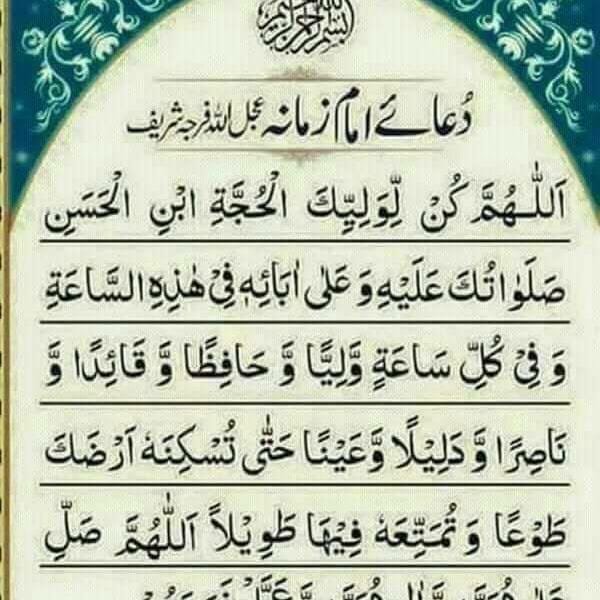 بسم الله الرحمن الرحيم
دُعائے امام زمانہ عجل اللہ فرجہ شریف
اَللّٰهُمَّ كُنْ لِّوَلِيِّكَ الْحُجَّةِ ابْنِ الْحَسَنِ
صَلَوٰاتُكَ عَلَيْهِ وَ عَلٰى اٰبَائِهٖ فِىْ هٰذِهِ السَّاعَةِ
وَ فِىْ كُلِّ سَاعَةٍ وَّلِيًّا وَّ حَافِظًا وَّ قَائِدًا وَّ
نَاصِرًا وَّ دَلِيْلًا وَّ عَيْنًا حَتّٰى تُسْكِنَهٗ اَرْضَكَ
طَوْعًا وَ تُمَتِّعَهٗ فِيْهَا طَوِيْلاً اَللّٰهُمَّ صَلِّ